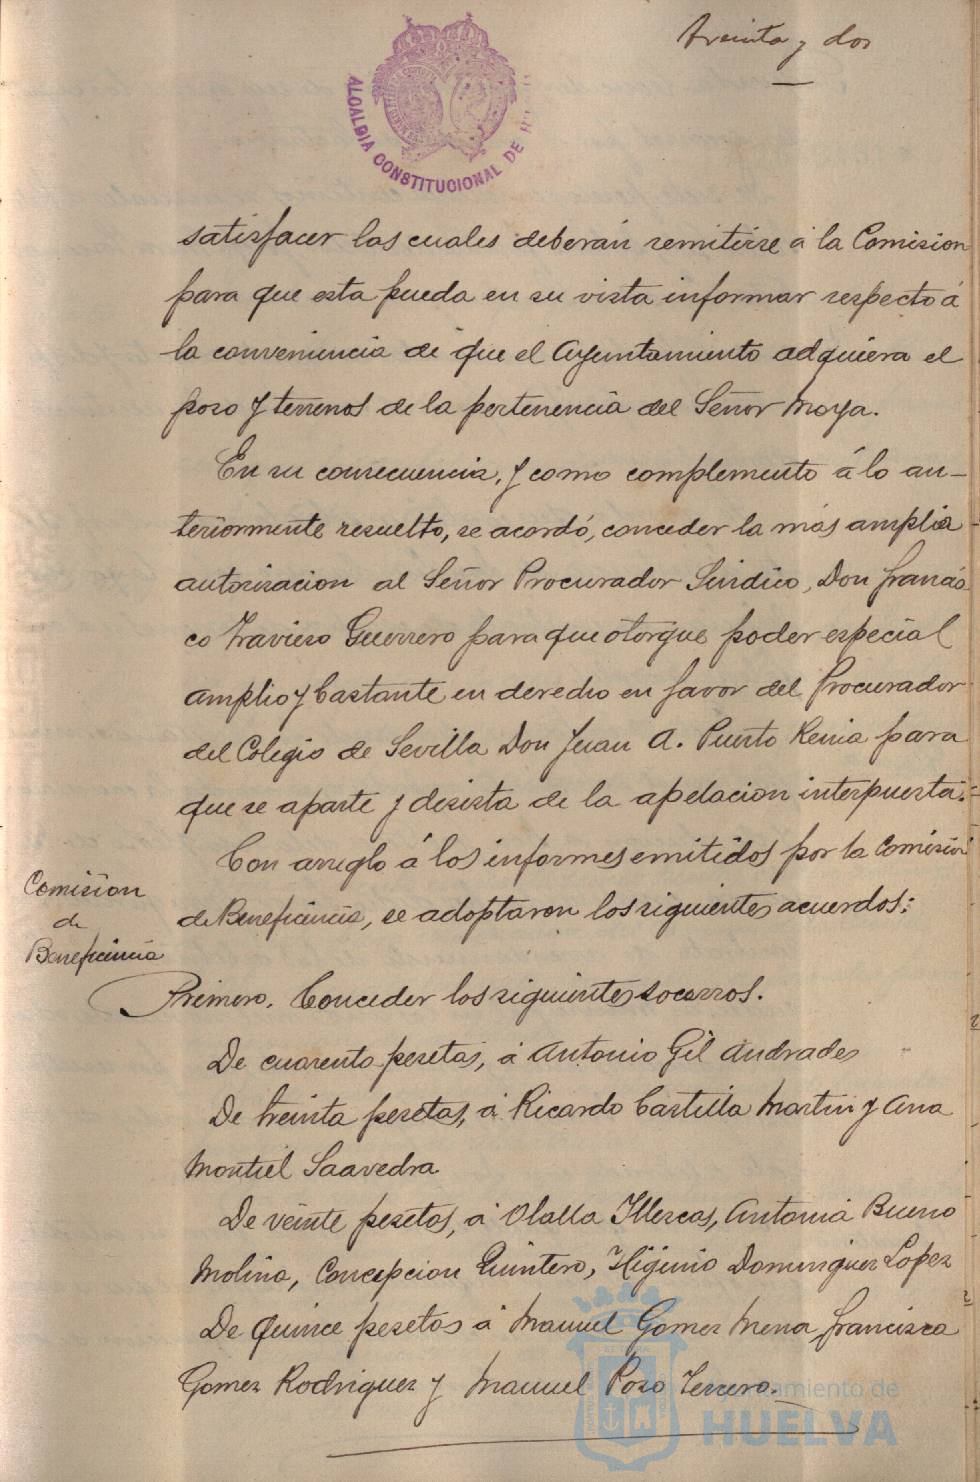 treinta y dos
ALCALDIA CONSTITUCIONAL DE
satisfacer las cuales deberán remitirse á la Comision
para que esta pueda en su vista informar respecto á
la conveniencia de que el Ayuntamiento adquiera el
poso y terrenos de la pertenencia del Señor Moya.
En su consecuencia, y como complemento á lo an-
teriormente resuelto, se acordó, conceder la más amplia
autorisacion al Señor Procurador Sindico, Don Francis
co Travieso Guerrero para que otorgue poder especial
amplio y bastante en derecho en favor del Procurador
del Colegio de Sevilla Don Juan A. Puerto para
que se aparte y desista de la apelacion interpuesta.
Con arreglo á los informes emitidos por la Comision
Comision
de
Beneficencia
de Beneficencia, se adoptaron los siguientes acuerdos:
Primero. Conceder los siguientes socorros.
De cuarenta pesetas, á Antonio Gil Andrades
De treinta pesetas, á Ricardo Castilla Martin y Ana
Montiel Saavedra
De veinte pesetas, á Olalla Illescas, Antonia Bueno
Molina, Concepcion Quintero, Higinio Dominguez Lopez
De quince pesetas á Manuel Gomez Mena, Francisca
Gomez Rodriguez y Manuel Poso Terrero.
Ayuntamiento de
HUELVA